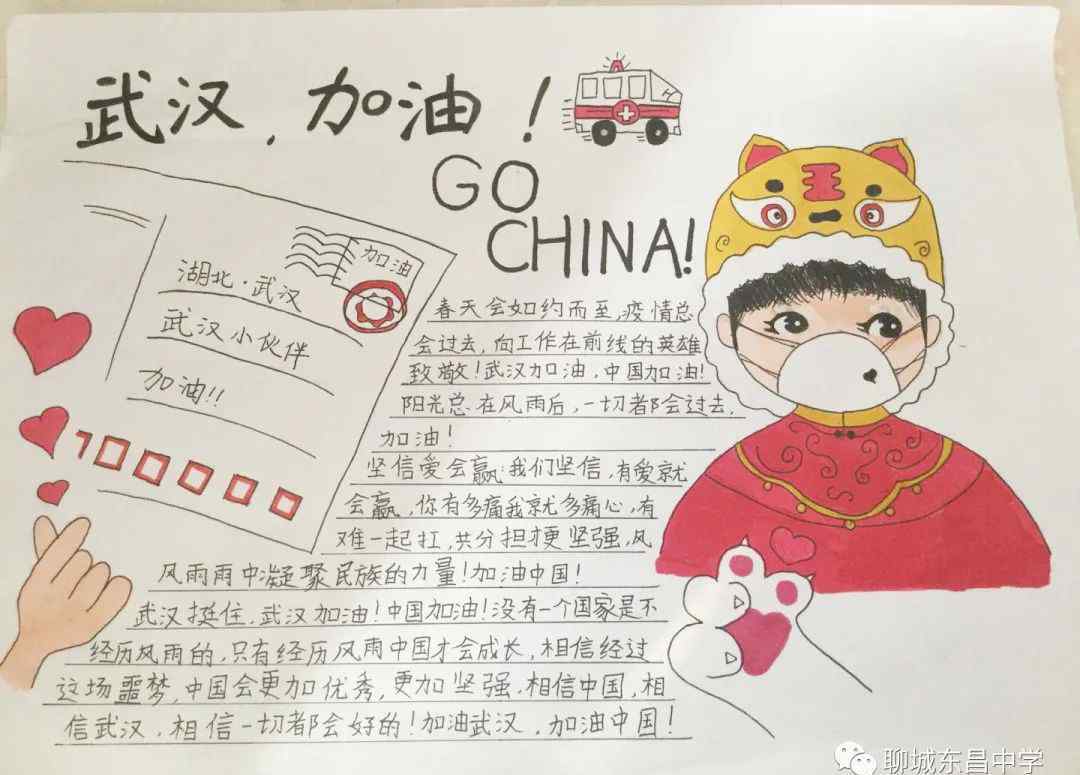 武汉，加油！
GO
CHINA!
加油
湖北·武汉
武汉小伙伴
加油!!
春天会如约而至，疫情总
会过去，向工作在前线的英雄
致敬！武汉加油，中国加油！
阳光总在风雨后，一切都会过去，
加油！
坚信爱会赢，我们坚信，有爱就
会赢，你有多痛我就多痛心，有
难一起扛，共分担才更坚强，风
风雨雨中凝聚民族的力量！加油中国！
武汉挺住，武汉加油！中国加油！没有一个国家是不
经历风雨的，只有经历风雨中国才会成长，相信经过
这场噩梦，中国会更加优秀，更加坚强，相信中国，相
信武汉，相信一切都会好的！加油武汉，加油中国！
王
聊城东昌中学